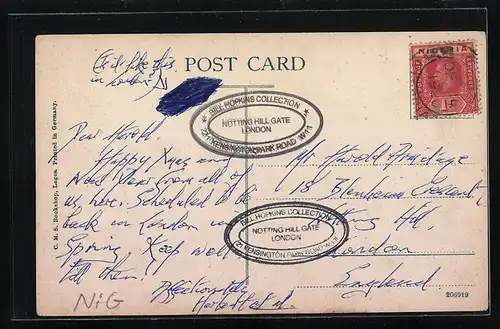 Chil like this
in London!
POST CARD
NIGERIA
BILL HOPKINS COLLECTION
NOTTING HILL GATE
LONDON
221 KENSINGTON PARK ROAD W11
Dear Harold
Happy Xmas and
New Year from all of
us, here. Scheduled to be
back in London in
Spring. Keep well
till then!
Affectionately
Mr. Harold Armitage
18 Blenheim Crescent
Hill
London
England
BILL HOPKINS COLLECTION
NOTTING HILL GATE
LONDON
221 KENSINGTON PARK ROAD W11
C. M. S. Bookshop, Lagos. Printed in Germany.
NIG
206919